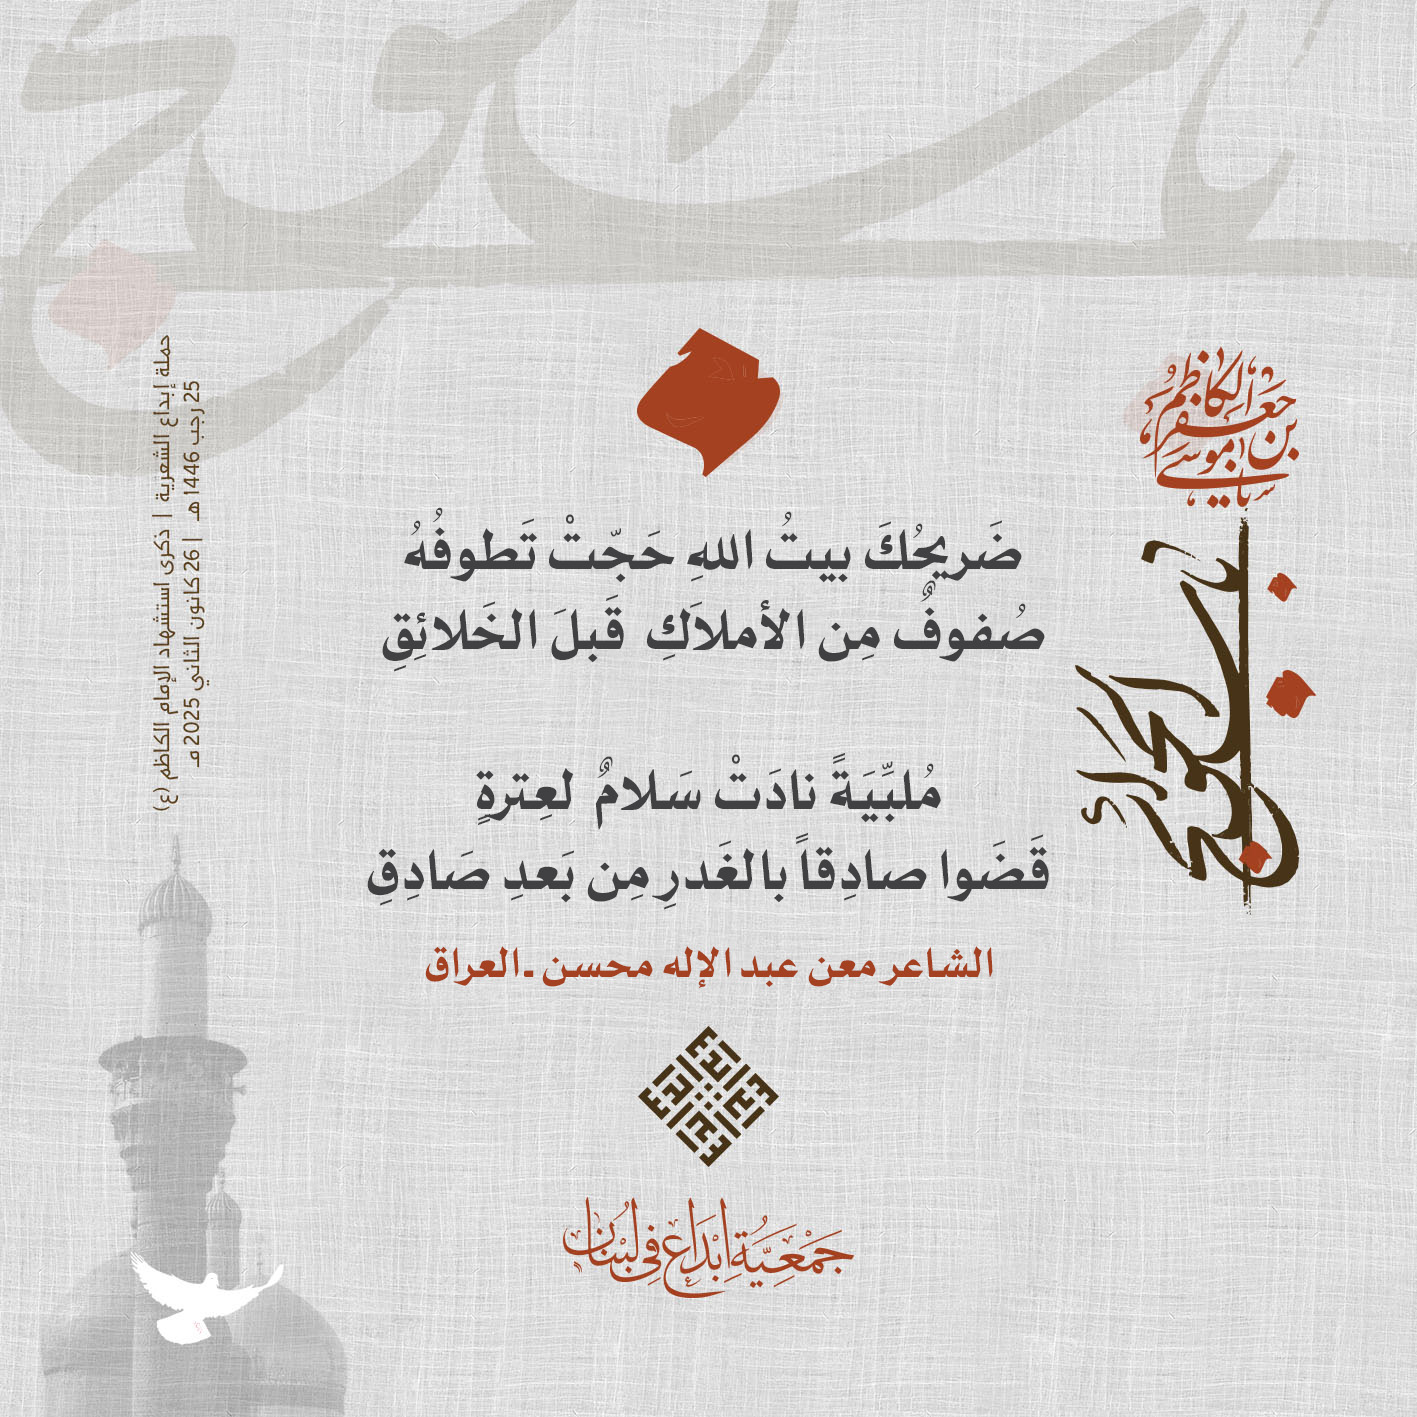 يا موسى
بن جعفر
الكاظم
باب الحوائج
ضَريحُكَ بيتُ اللهِ حَجّتْ تَطوفُهُ
صُفوفٌ مِن الأملاَكِ قَبلَ الخَلائِقِ
مُلبِّيَةً نادَتْ سَلامٌ لعِترةٍ
قَضَوا صادِقاً بالغَدرِ مِن بَعدِ صَادِقِ
الشاعر معن عبد الإله محسن ـ العراق
جَمْعِيَّةُ إِبْدَاع فِي لُبْنَان
حملة إبداع الشعرية | ذكرى استشهاد الإمام الكاظم (ع)
25 رجب 1446 هـ | 26 كانون الثاني 2025 مـ